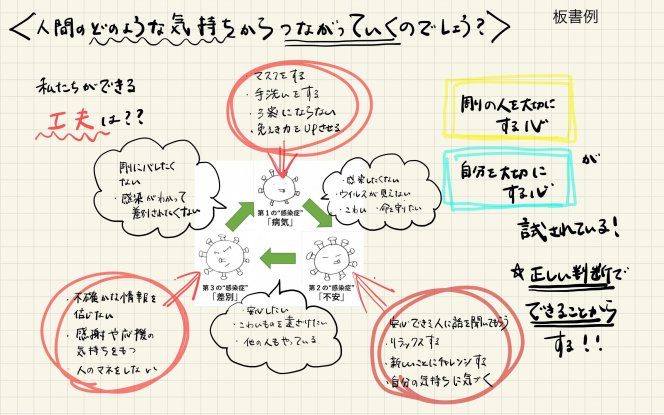 板書例
<人間のどのような気持ちからつながっていくのでしょう?>
私たちができる
工夫は??
・マスクをする
・手洗いをする
・3密にならない
・免えき力をUPさせる
周りの人を大切に
する心
自分を大切に
する心
が
試されている!
☆正しい判断で
できることから
する!!
周りにバレたく
ない
・感染がわかって
差別されたくない
・感染したくない
・ウイルスが見えない
・こわい ・命を守りたい
第1の"感染症"
「病気」
第3の"感染症"
「差別」
第2の"感染症"
「不安」
・安心したい
・こわいものを遠ざけたい
・他の人もやっている
・不確かな情報を
信じない
・感謝や応援の
気持ちをもつ
・人のマネをしない
・安心できる人に話を聞いてもらう
・リラックスする
・新しいことにチャレンジする
・自分の気持ちに気づく